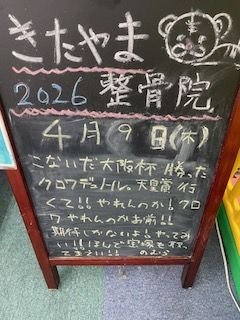 きたやま
2026 整骨院
4月9日(木)
こないだ大阪杯 勝った
クロワデュノール 天皇賞 行
くて!! やれんのか! クロ
ワ やれんのかお前!!
期待しかないよ! やってみ
い!! ほんで宝塚も杯っ
てまえい!! のむら